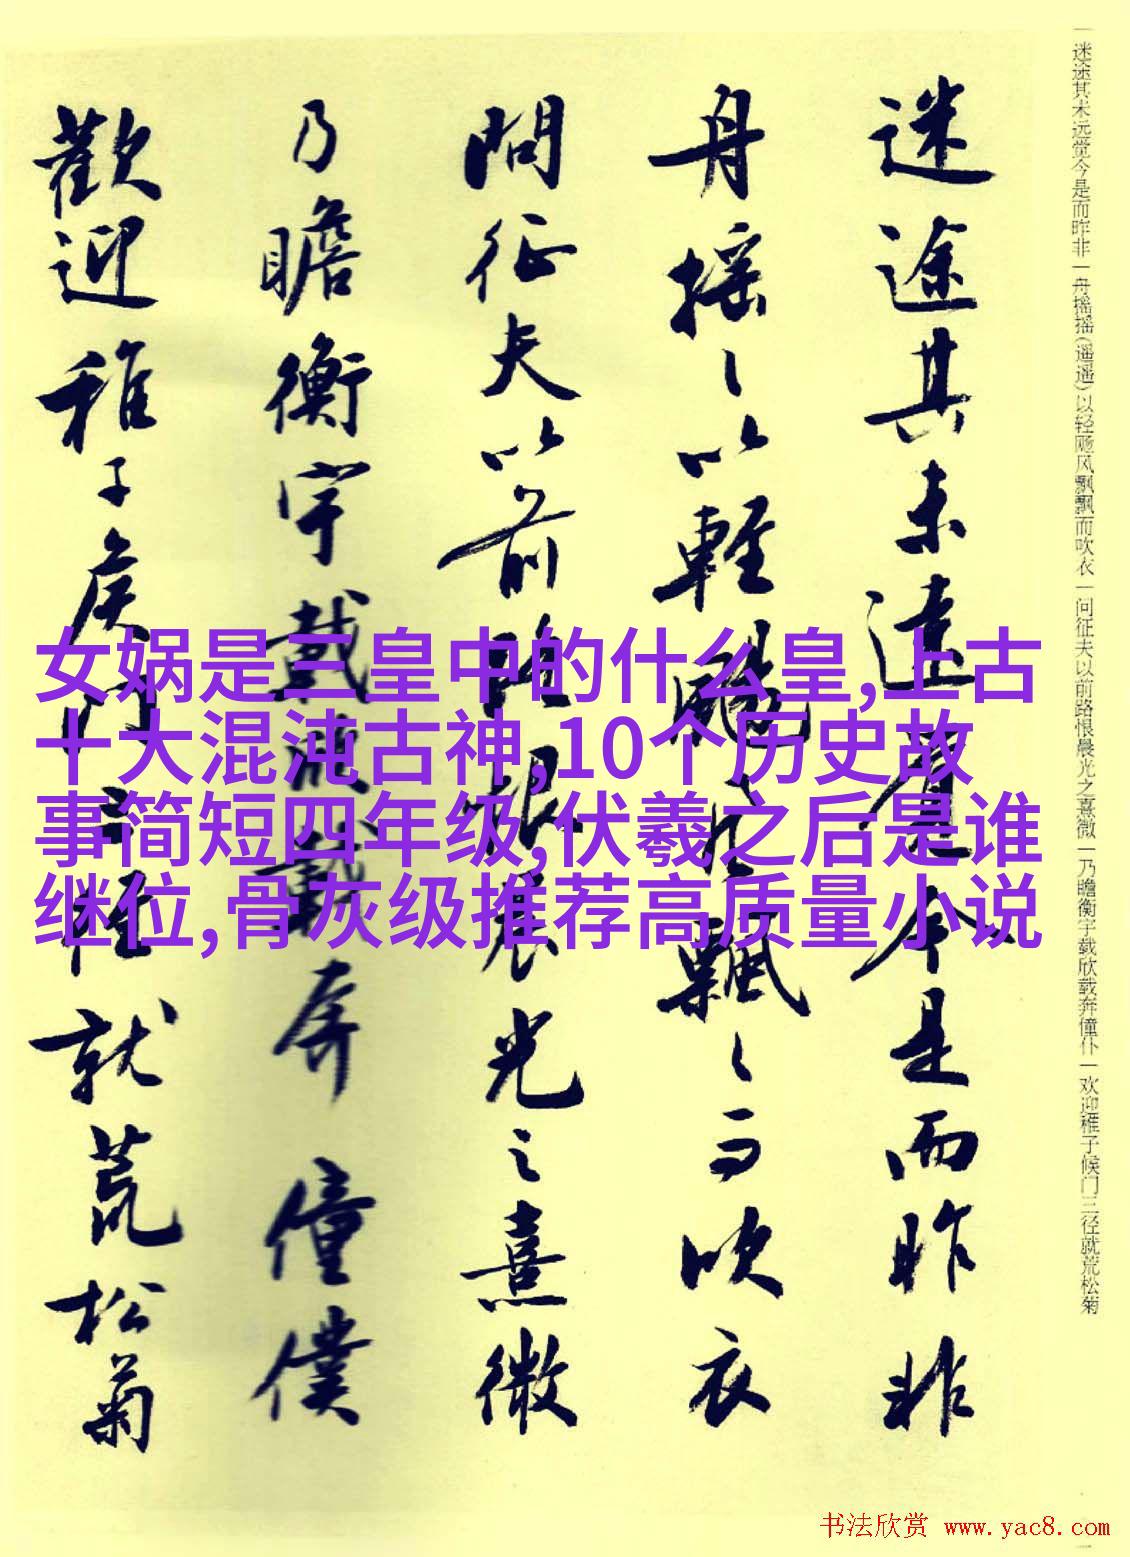 迷途其未远觉今是而昨非
舟摇摇以轻飏风飘飘而吹衣
问征夫以前路恨晨光之熹微
乃瞻衡宇载欣载奔僮仆
欢迎稚子候门三径就荒松菊
一迷途其未远觉今是而昨非一舟摇摇(遥遥)以轻飏风飘飘而吹衣一问征夫以前路恨晨光之熹微一乃瞻衡宇载欣载奔僮仆一欢迎稚子候门三径就荒松菊
女娲是三皇中的什么皇,上古
十大混沌古神,10个历史故
事简短四年级,伏羲之后是谁
继位,骨灰级推荐高质量小说
书法欣赏 www.yac8.com